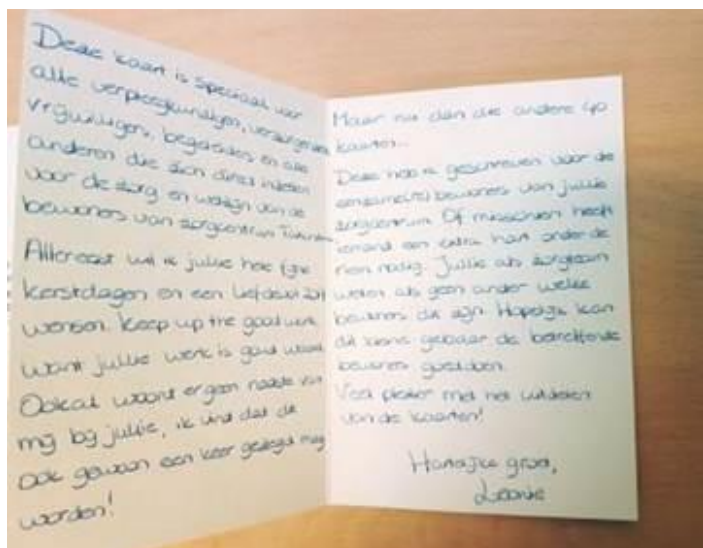 Deze kaart is speciaal voor
alle verpleegkundigen, verzorgenden
vrijwilligers, begeleiders en alle
anderen die zich direct inzetten
voor de zorg en welzijn van de
bewoners van zorgcentrum
Allereerst wil ik jullie hele fijne
kerstdagen en een liefdevol 2019
wensen. Keep up the good work
want jullie werk is goud waard
Ookal woont er geen naaste van
mij bij jullie, ik vind dat dit
ook gewoon een keer gezegd mag
worden!
Maar nu dan die andere 40
kaarten...
Deze heb ik geschreven voor de
eenzame(re) bewoners van jullie
zorgcentrum. Of misschien heeft
iemand een extra hart onder de
riem nodig. Jullie als zorgteam
weten als geen ander welke
bewoners dit zijn. Hopelijk kan
dit kleine gebaar de betreffende
bewoners goeddoen.
Veel plezier met het uitdelen
van de kaarten!
Hartelijke groet,
Leonie